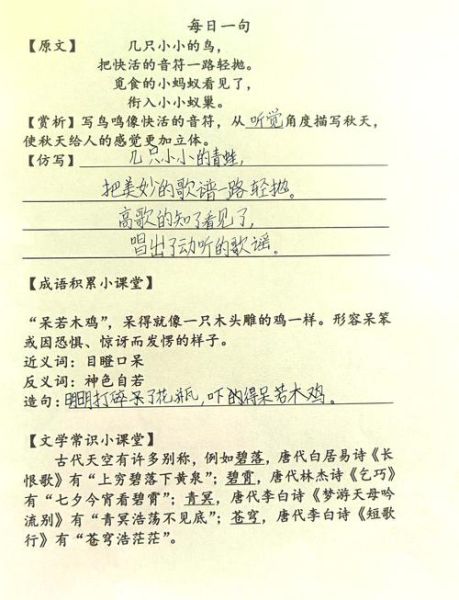 每日一句
【原文】 几只小小的鸟，
把快活的音符一路轻抛。
觅食的小蚂蚁看见了，
衔入小小蚁巢。
【赏析】写鸟鸣像快活的音符，从听觉角度描写秋天，
使秋天给人的感觉更加立体。
【仿写】 几只小小的青蛙，
把美妙的歌谱一路轻抛。
高歌的知了看见了，
唱出了动听的歌谣。
【成语积累小课堂】
“呆若木鸡”，呆得就像一只木头雕的鸡一样。形容呆笨
或因恐惧、惊讶而发愣的样子。
近义词：目瞪口呆
反义词：神色自若
造句：明明打碎了花瓶，吓得呆若木鸡。
【文学常识小课堂】
古代天空有许多别称，例如碧落，唐代白居易诗《长
恨歌》有“上穷碧落下黄泉”；碧霄，唐代林杰诗《乞巧》
有“七夕今宵看碧霄”；青冥，唐代李白诗《梦游天母吟
流别》有“青冥浩荡不见底”；苍穹，唐代李白诗《短歌
行》有“苍穹浩茫茫”。